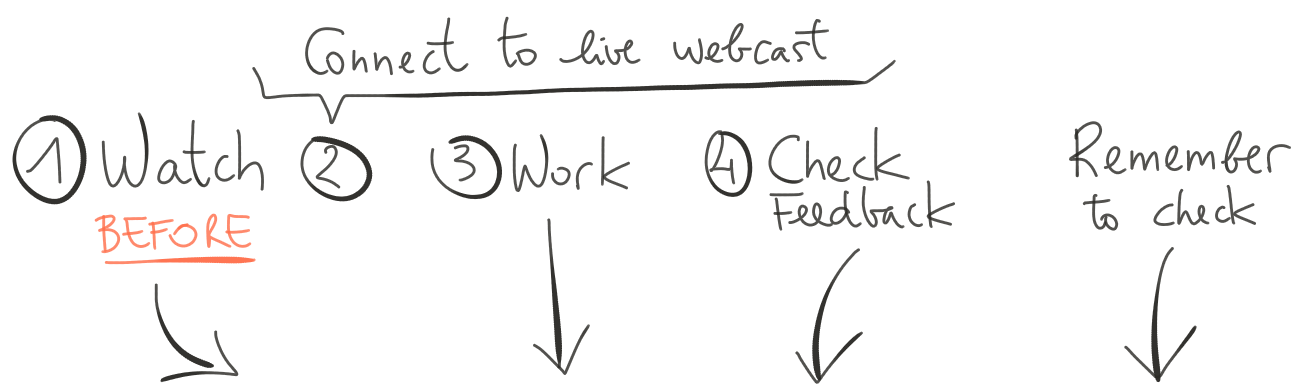 Connect to live webcast
1 Watch
BEFORE
2
3 Work
4 Check
Feedback
Remember
to check